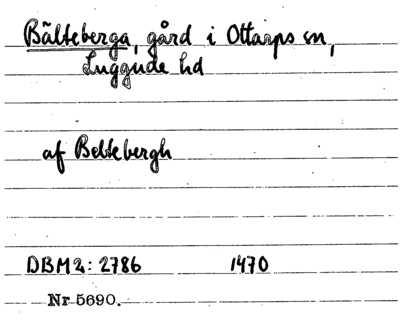 Bälteberga, gård i Ottarps sn,
Luggude hd
af Beltebergh
DBM2: 2786 1470
Nr 5690.